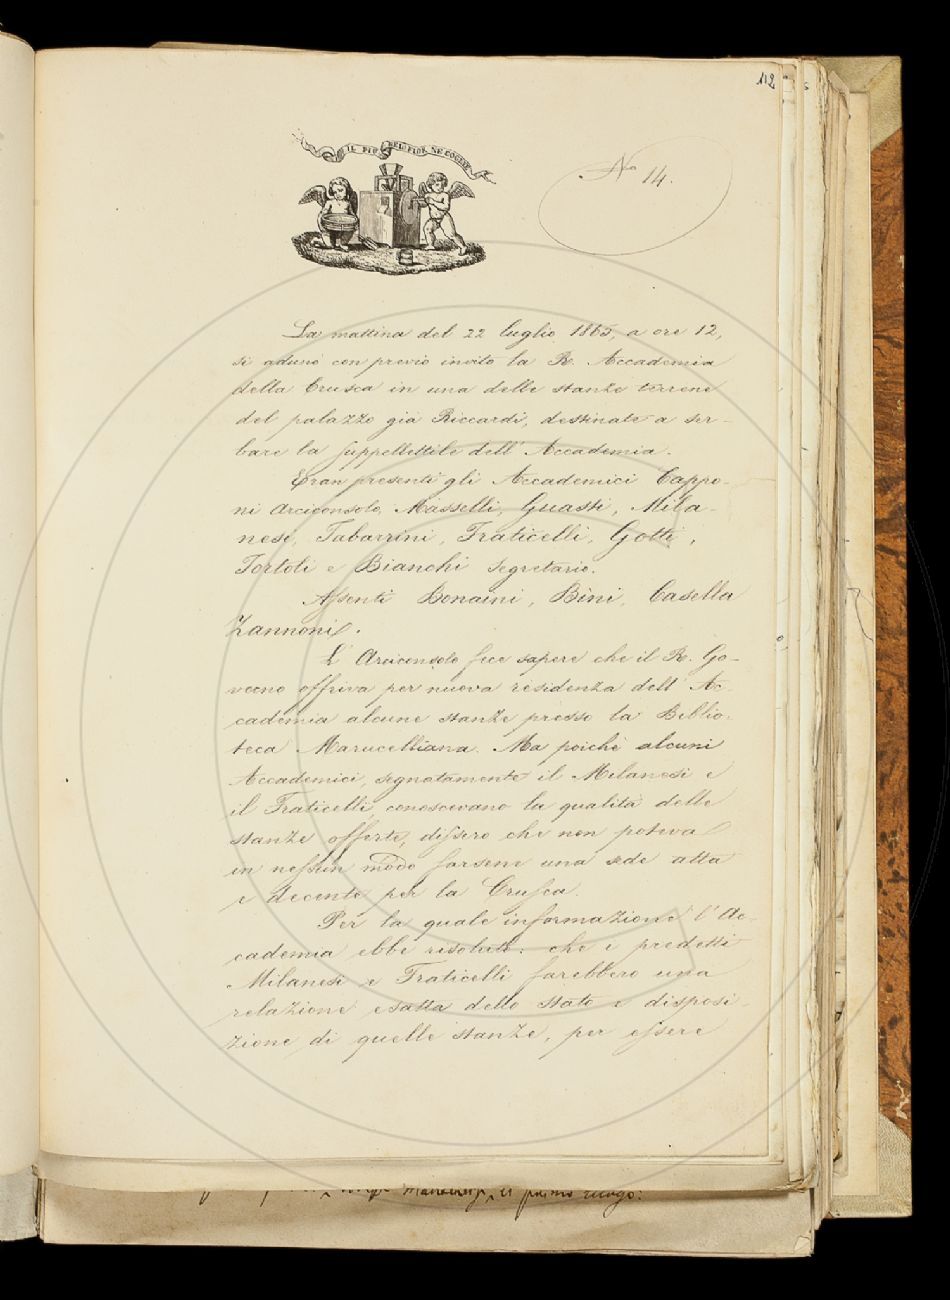 112
IL PIÙ BEL FIOR NE COGLIE
No 14.
La mattina del 22 luglio 1865, a ore 12,
si adunò con previo invito la R. Accademia
della Crusca in una delle stanze terrene
del palazzo già Riccardi, destinate a ser-
bare la suppellettile dell' Accademia.
Eran presenti gli Accademici Cappo-
ni Arciconsolo, Masselli, Guasti, Mila-
nesi, Tabarrini, Fraticelli, Gotti,
Tortoli e Bianchi segretario.
Assenti Bonaini, Bini, Casella
Zannoni.
L' Arciconsolo fece sapere che il R. Go-
verno offriva per nuova residenza dell' Ac-
cademia alcune stanze presso la Biblio-
teca Marucelliana. Ma poichè alcuni
Accademici, segnatamente il Milanesi e
il Fraticelli, conoscevano la qualità delle
stanze offerte, dissero che non poteva
in nessun modo farsene una sede atta
e decente per la Crusca.
Per la quale informazione l' Ac-
cademia ebbe risoluto: che i predetti
Milanesi e Fraticelli farebbero una
relazione esatta dello stato e disposi-
zione di quelle stanze, per essere